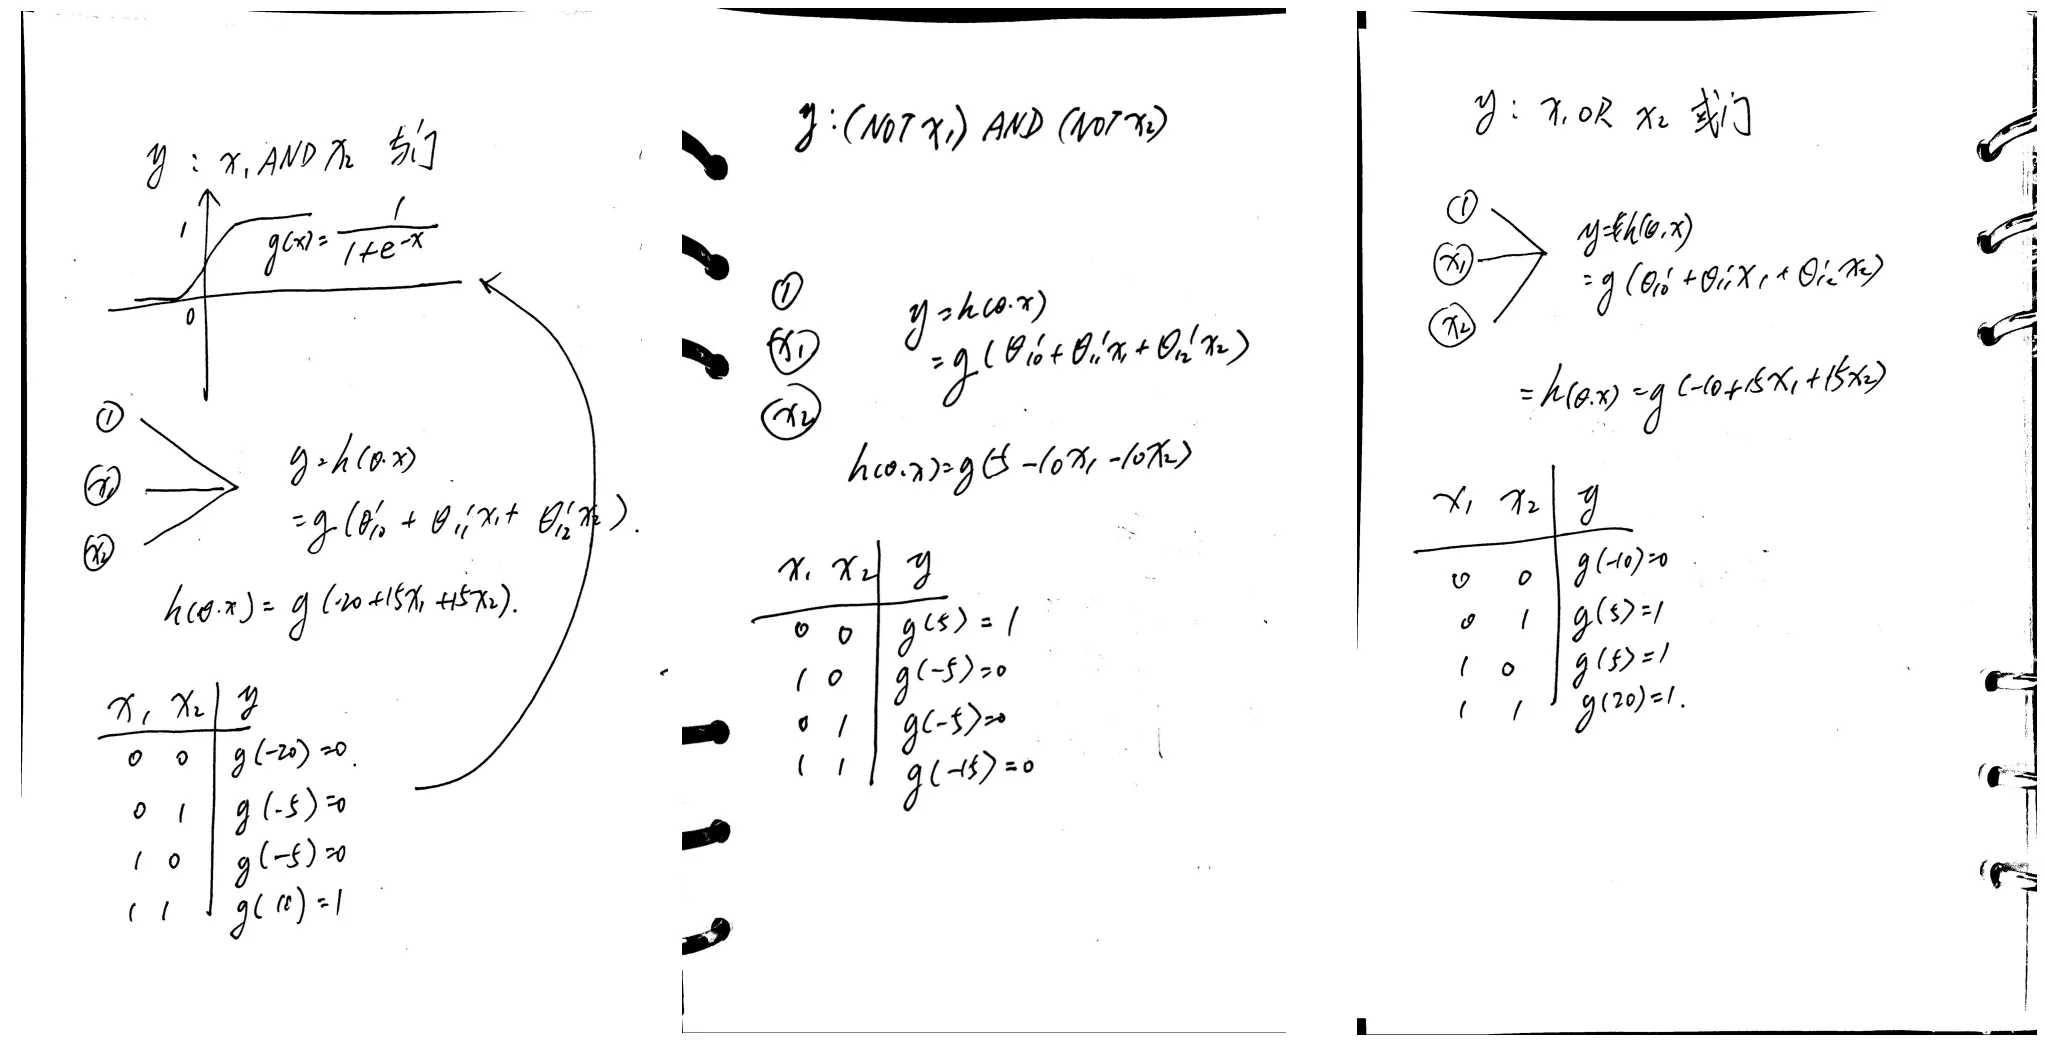 y : x₁ AND x₂ 与门
1
g(x)= 1/(1+e^-x)
0
①
x₁
x₂
y=h(θ·x)
=g(θ₁₀' + θ₁₁'x₁+ θ₁₂'x₂).
h(θ·x)= g(-20+15x₁+15x₂).
x₁ x₂ y
0 0 g(-20)=0.
0 1 g(-5)=0
1 0 g(-5)=0
1 1 g(10)=1
y:(NOT x₁) AND (NOT x₂)
①
x₁
x₂
y=h(θ·x)
=g(θ₁₀'+θ₁₁'x₁+θ₁₂'x₂)
h(θ·x)=g(5-10x₁-10x₂)
x₁ x₂ y
0 0 g(5)=1
1 0 g(-5)=0
0 1 g(-5)=0
1 1 g(-15)=0
y: x₁ OR x₂ 或门
①
x₁
x₂
y=h(θ·x)
=g(θ₁₀'+θ₁₁'x₁+θ₁₂'x₂)
=h(θ·x)=g(-10+15x₁+15x₂)
x₁ x₂ y
0 0 g(-10)=0
0 1 g(5)=1
1 0 g(5)=1
1 1 g(20)=1.